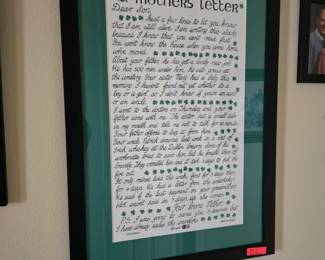 A Mothers Letter
Dear Son,
Just a few lines to let you know
that I am still alive. I am writing this slowly
because I know that you can't read fast.
You won't know the house when you come home
we've moved.
About your father, he has got a lovely new job.
He has 500 men under him, he cuts grass at
the cemetery. Your sister Mary had a baby this
morning. I haven't found out yet whether its a
boy or a girl so I don't know if your an aunt
or an uncle.
I went to the doctor on Thursday and your
father came with me. The doctor put a small tube
in my mouth and told me not to talk for
Your father offered to buy it from him.
Your uncle Patrick drowned last week in a vat of
Irish whiskey at the Dublin Brewery. Some of his
workmates tried to save him but he fought them off
bravely. They cremated him and it took 3 days to put the
fire out.
It only rained twice this week, first for 3 days then
for 4 days. We had a letter from the undertaker.
He said if the last payment on your grandmother's
plot wasn't paid in 7 days, up she comes.
Your loving Mother.
P.S. I was going to send you but
I have already sealed the envelope.